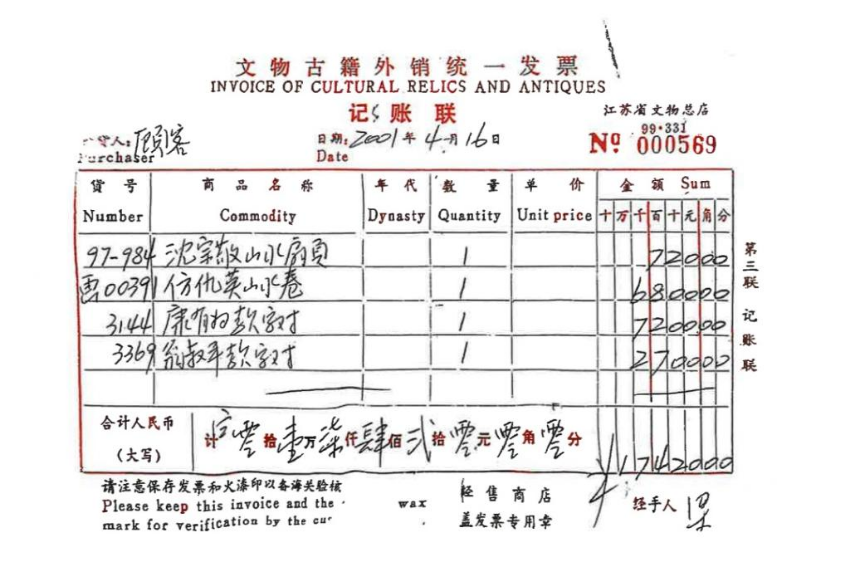 文物古籍外销统一发票
INVOICE OF CULTURAL RELICS AND ANTIQUES
记账联
江苏省文物总店
货人:顾客
日期:2001年4月16日
99·331
№ 000569
Purchaser
Date
货号 商品名称 年代 数量 单价 金额 Sum
Number Commodity Dynasty Quantity Unit price 十万千百十元角分
97-984 沈宗敬山水扇页 1 72000
00391 仿仇英山水卷 1 680000
3144 康有为款字对 1 720000
3369 翁叔平款字对 1 270000
合计人民币
(大写)
计 零拾壹万柒仟肆佰贰拾零元零角零分 ¥1742000
第三联 记账联
请注意保存发票和火漆印以备海关验核
Please keep this invoice and the wax
mark for verification by the cu
经售商店
盖发票专用章
经手人